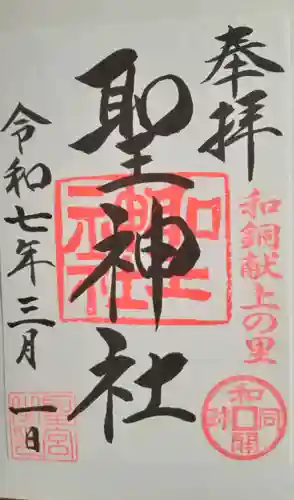 奉拝
和銅献上の里
聖神社
令和七年三月一日
聖神社
和同開珎